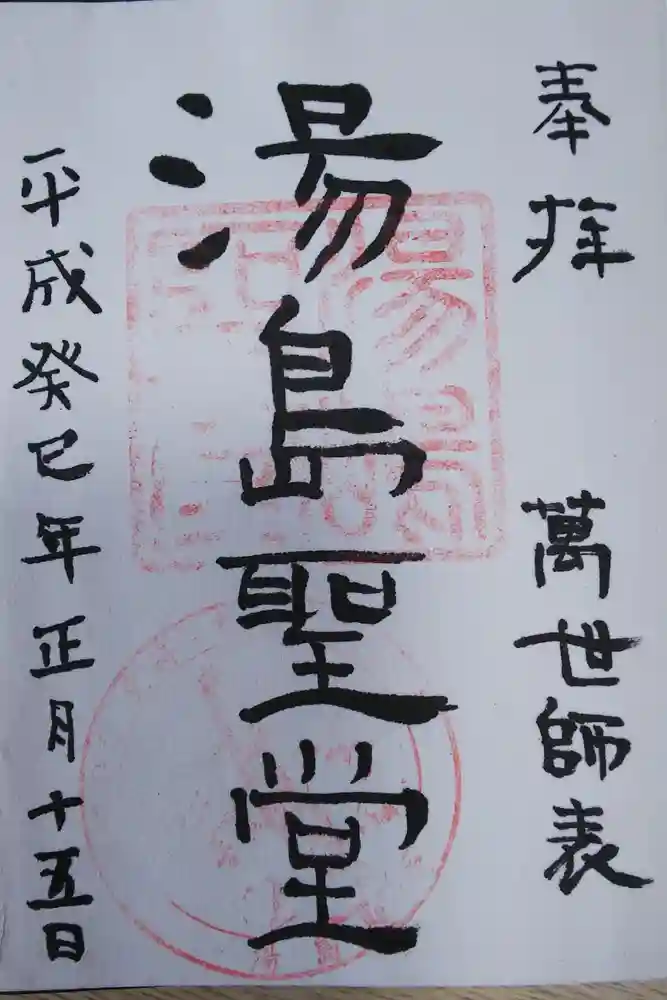 奉拝
萬世師表
湯島聖堂
平成癸巳年正月十五日